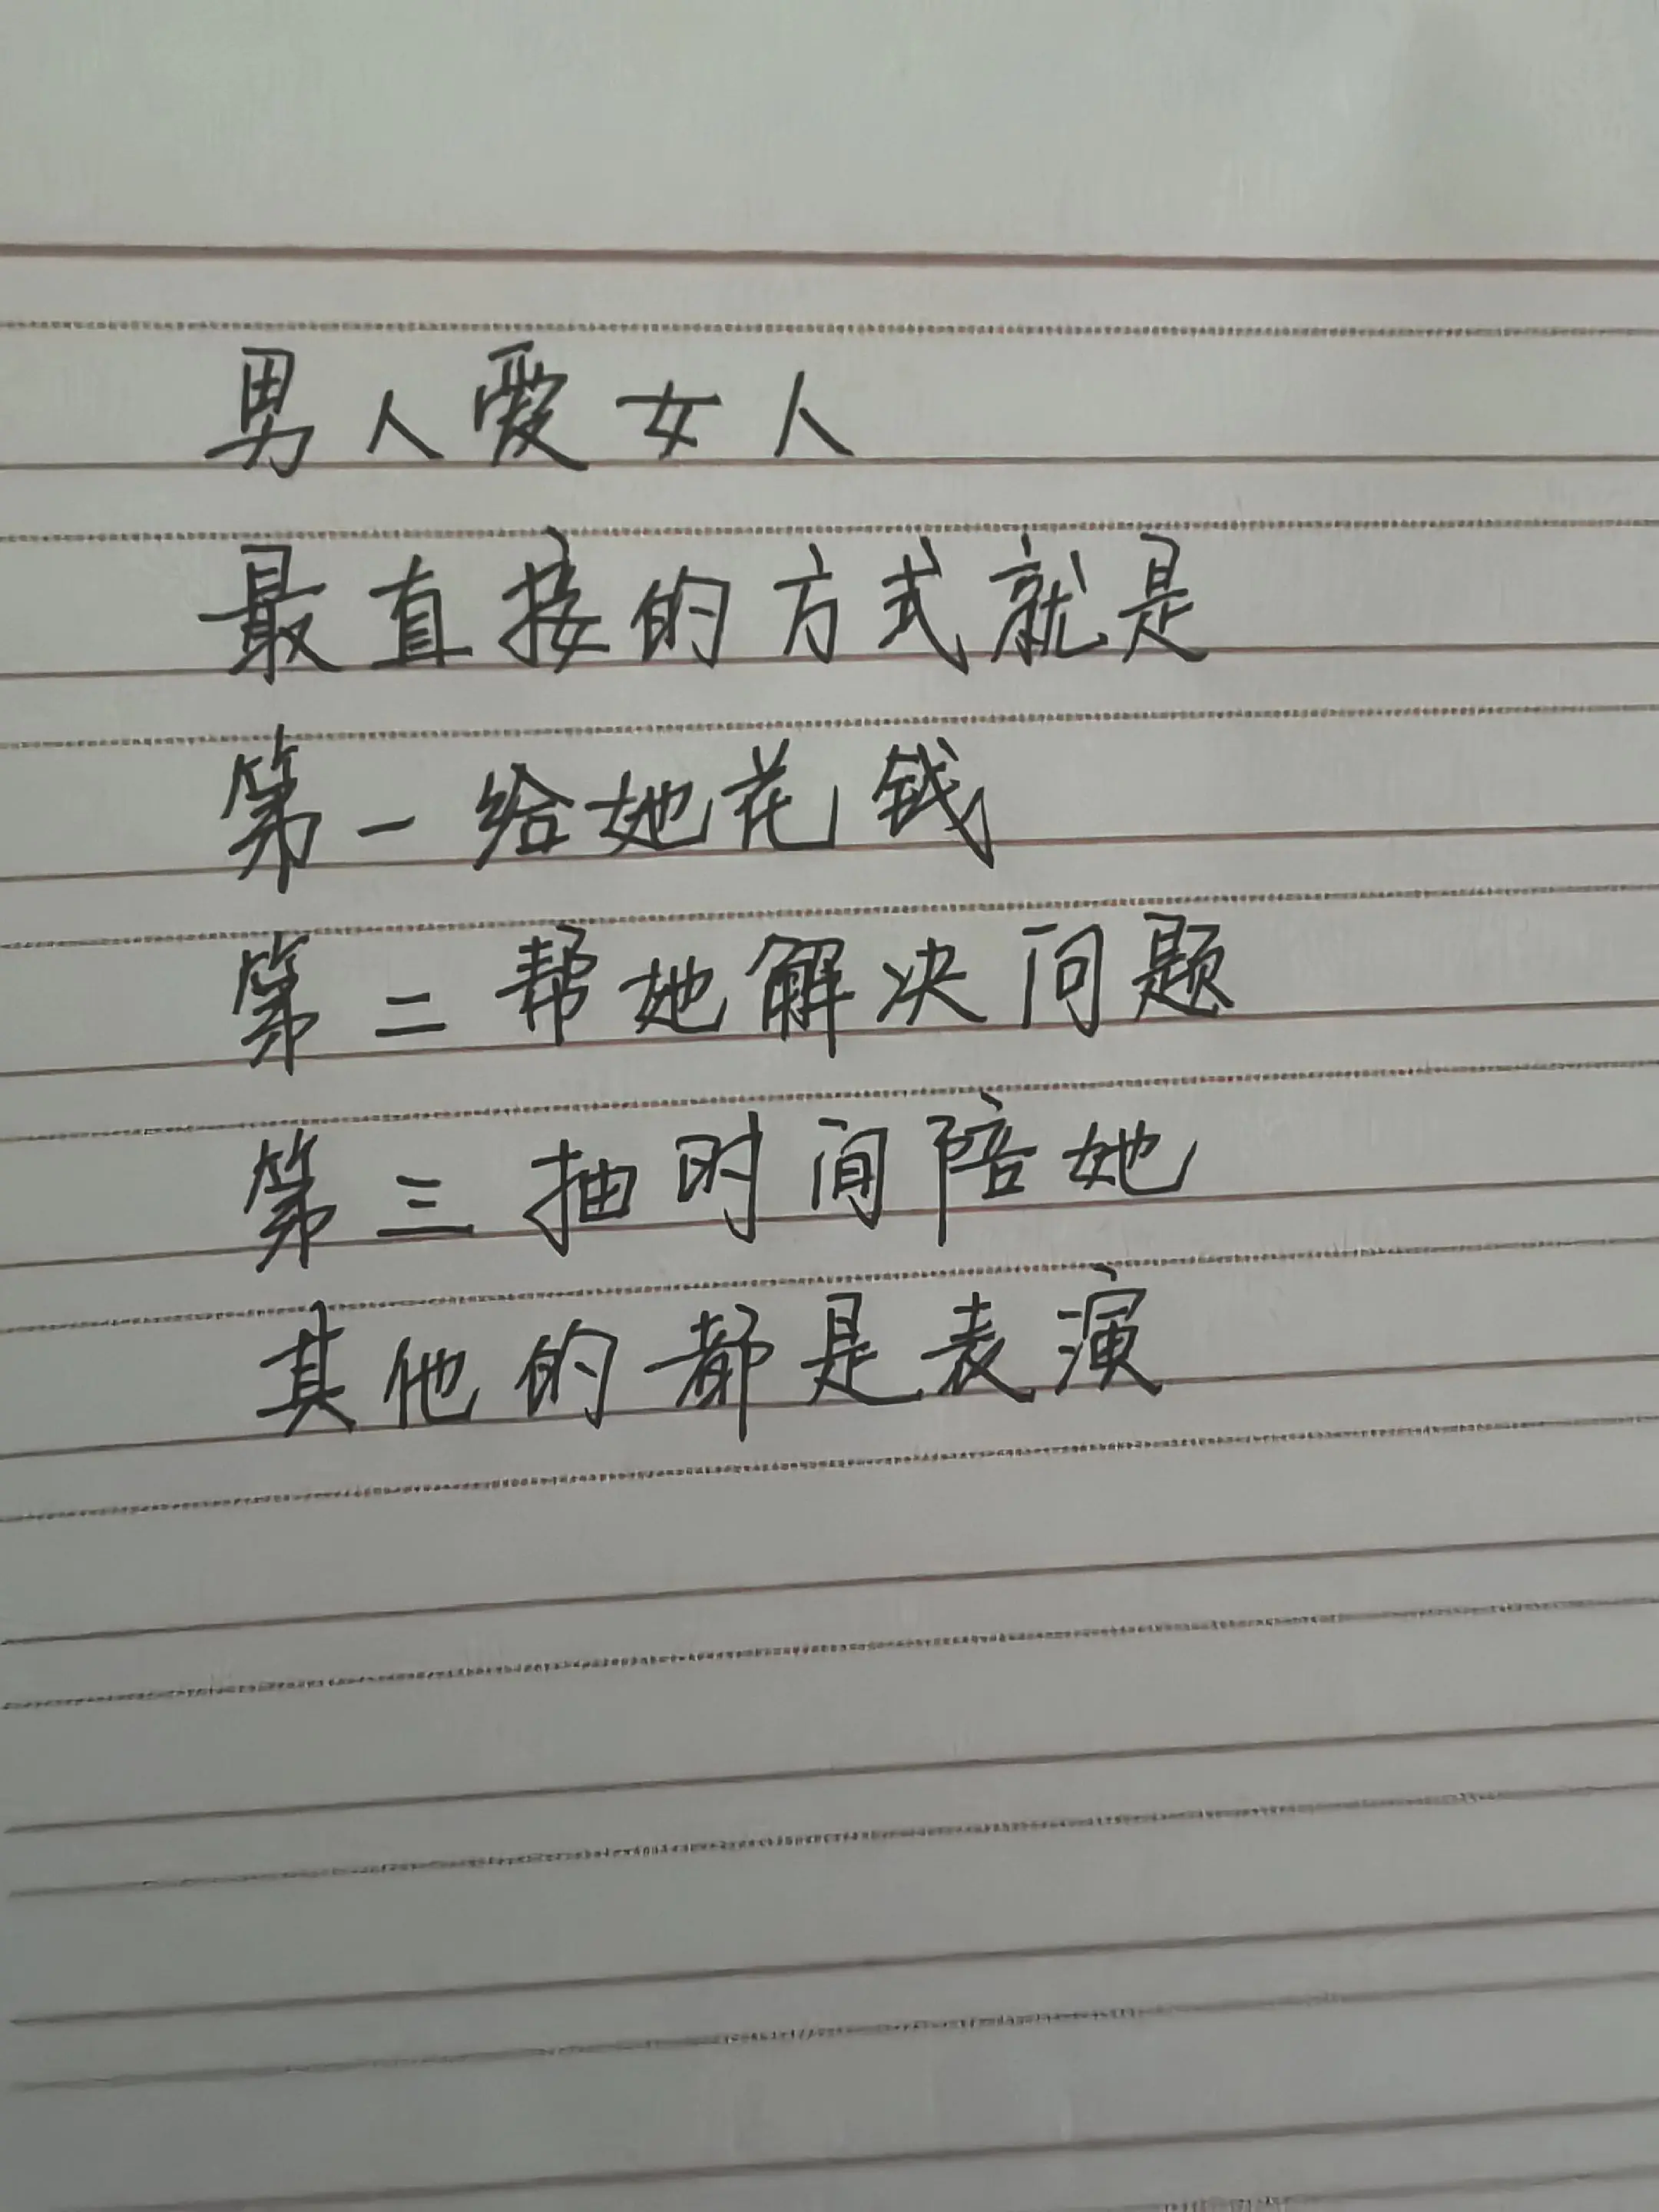 男人爱女人
最直接的方式就是
第一给她花钱
第二帮她解决问题
第三抽时间陪她
其他的都是表演